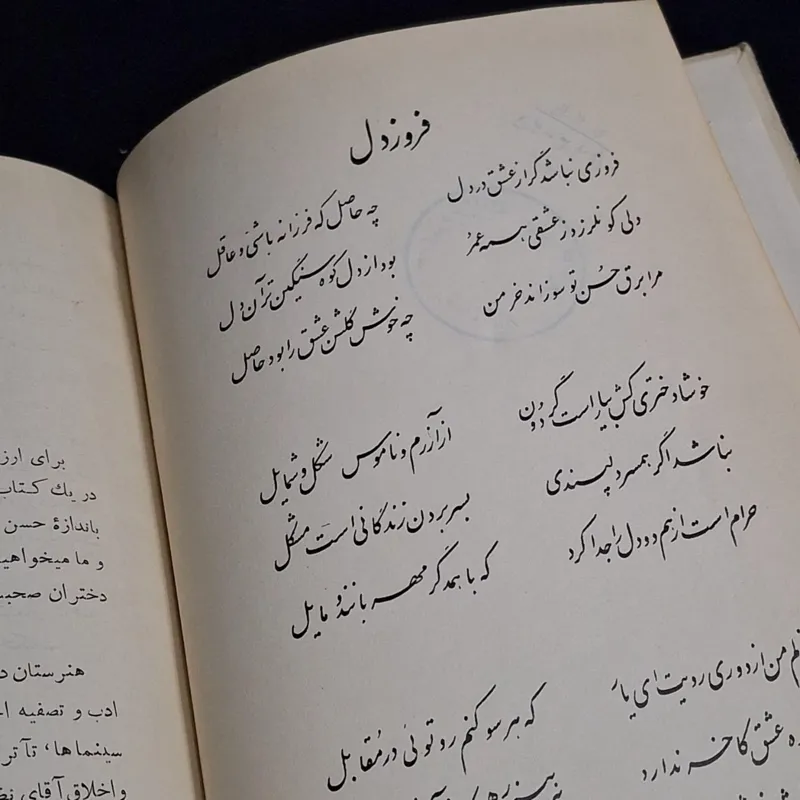 فروزدل
فروزی نباشد گر از عشق در دل
چه حاصل که فرزانه باشی و عاقل
دلی کو نلرزد ز عشقی همه عمر
بود از دل کوه سنگین تر آن دل
مرا برق حُسن تو سوزاند خرمن
چه خوش گلشن عشق را بود حاصل
خوشا دختری کش بیاراست گردون
از آزرم و ناموس شکل و شمایل
نباشد اگر همسر دلپسندی
بسر بردن زندگانی است مشکل
حرام است از هم دو دل را جدا کرد
که با همدگر مهربانند و مایل
من از دوری رویت ای یار
که هر سو کنم رو توئی در مُقابل
عشق کاخر ندارد
برای
در یك کتاب
باندازهٔ حسن
و ما میخواهیم
دختران صحبت
هنرستان
ادب و تصفیه
سینماها، تآتر
و اخلاق آقای